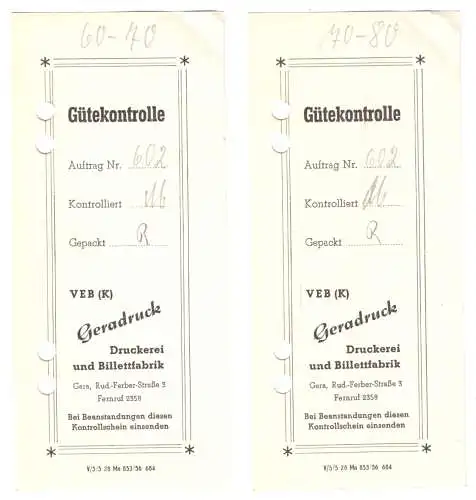 60-70
Gütekontrolle
Auftrag Nr. 602
Kontrolliert
Gepackt R
VEB (K)
Geradruck
Druckerei
und Billettfabrik
Gera, Rud.-Ferber-Straße 3
Fernruf 2358
Bei Beanstandungen diesen
Kontrollschein einsenden
V/5/5 28 Ma 853/56 684
70-80
Gütekontrolle
Auftrag Nr. 602
Kontrolliert
Gepackt R
VEB (K)
Geradruck
Druckerei
und Billettfabrik
Gera, Rud.-Ferber-Straße 3
Fernruf 2358
Bei Beanstandungen diesen
Kontrollschein einsenden
V/5/5 28 Ma 853/56 684